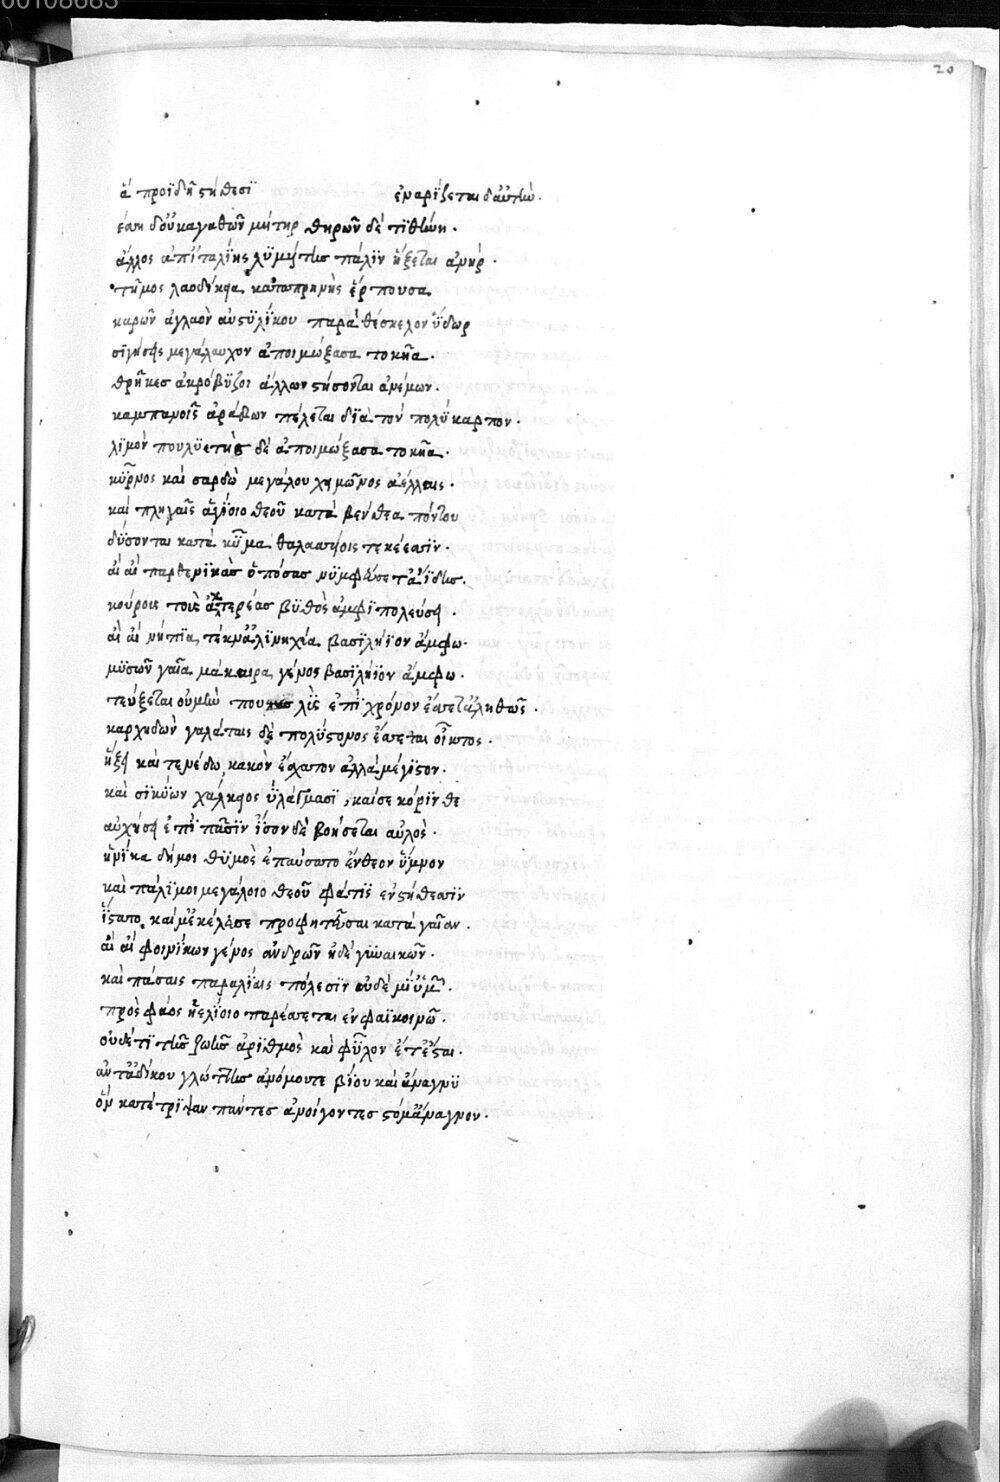 20
ἅ προϊδῆ στήθεσϊ ἐναρϊζεται δἀυτὼ.
ἐσση δ' οὐκ ἀγαθῶν μήτηρ θηρῶν δὲ τϊθήνη.
ἄλλος ἀπ' ϊταλϊης λϋμήτης πάλϊν ἥξεται ἀνήρ.
τῆμος λαοδίκεια καταπρηνὴς ἔρπουσα
καρῶν ἀγλαὸν αυ λύκου παρὰ θέσκελον ὕδωρ
σϊγήσεις μεγάλαυχον ἀποιμώξασα τοκῆα.
θρῆκες ἀκρόβϋζοι άλλων στήσονται ἀνέμων.
καμπανοῖς ἀράβων πέλεται δϊὰ τὸν πολύκαρπον.
λϊμὸν πουλϋετὴς δὲ ἀποιμώξασα τοκῆα.
κύρνος καὶ σαρδὼ μεγάλου χημῶνος ἀέλλαις.
καὶ πληγαῖς ἁγίοιο θεοῦ κατὰ βένθεα πόντου
δύσονται κατὰ κῦμα θαλασσήοις τεκέεσϊν.
αἰ αἰ παρθενϊκὰς ὁπόσας νϋμφεύσεται ἄϊδης.
κούρους τοὺς ἀκτερέας βϋθὸς ἀμφϊπολεύσει.
αἰ αἰ νήπϊα τέκν' ἁλϊνηχέα βασϊλήϊον ἄμφω.
μϋσῶν γαῖα μάκαιρα γένος βασϊλήϊον ἄμφω.
τεύξεται οὐ μὴν πουλὺς ἐπὶ χρόνον ἔσσετ' ἀληθῶς.
καρχηδὼν γαλάταις δὲ πολύστονος ἔσσεται οἶκτος.
ἥξει καὶ τενέδω κακὸν ἔσχατον ἀλλὰ μέγϊστον.
καὶ σϊκϋὼν χάλκειος ὑλάγμασϊ, καί σε κόρϊνθε
αὐχήσει ἐπὶ πᾶσϊν ἴσον δὲ βοήσεται αὐλὸς.
ἡνίκα δή μοι θϋμὸς ἐπαύσατο ἔνθεον ὕμνον
καὶ πάλϊ μοι μεγάλοιο θεοῦ φάτϊς ἐν στήθεσϊν
ἵστατο, καί μ' ἐκέλευσε προφητεῦσαι κατὰ γαῖαν.
αἰ αἰ φοινίκων γένος ἀνδρῶν ἠδὲ γϋναικῶν.
καὶ πάσαις παραλίαις πόλεσϊν οὐδὲ μί' ὑμῶν.
πρὸς φάος ἠελϊοιο παρέσσεται ἐν φαϊ κοινῶ.
οὐδέ τϊ τῆς ζωῆς ἀρϊθμὸς καὶ φῦλον ἔτ' ἔσται.
ἀντ' ἀδίκου γλώττης ἀνόμου τε βίου καὶ ἀνάγνϋ
ὃν κατέτρϊψαν πάντες ἀνοίγοντες στόμ' ἄναγνον.